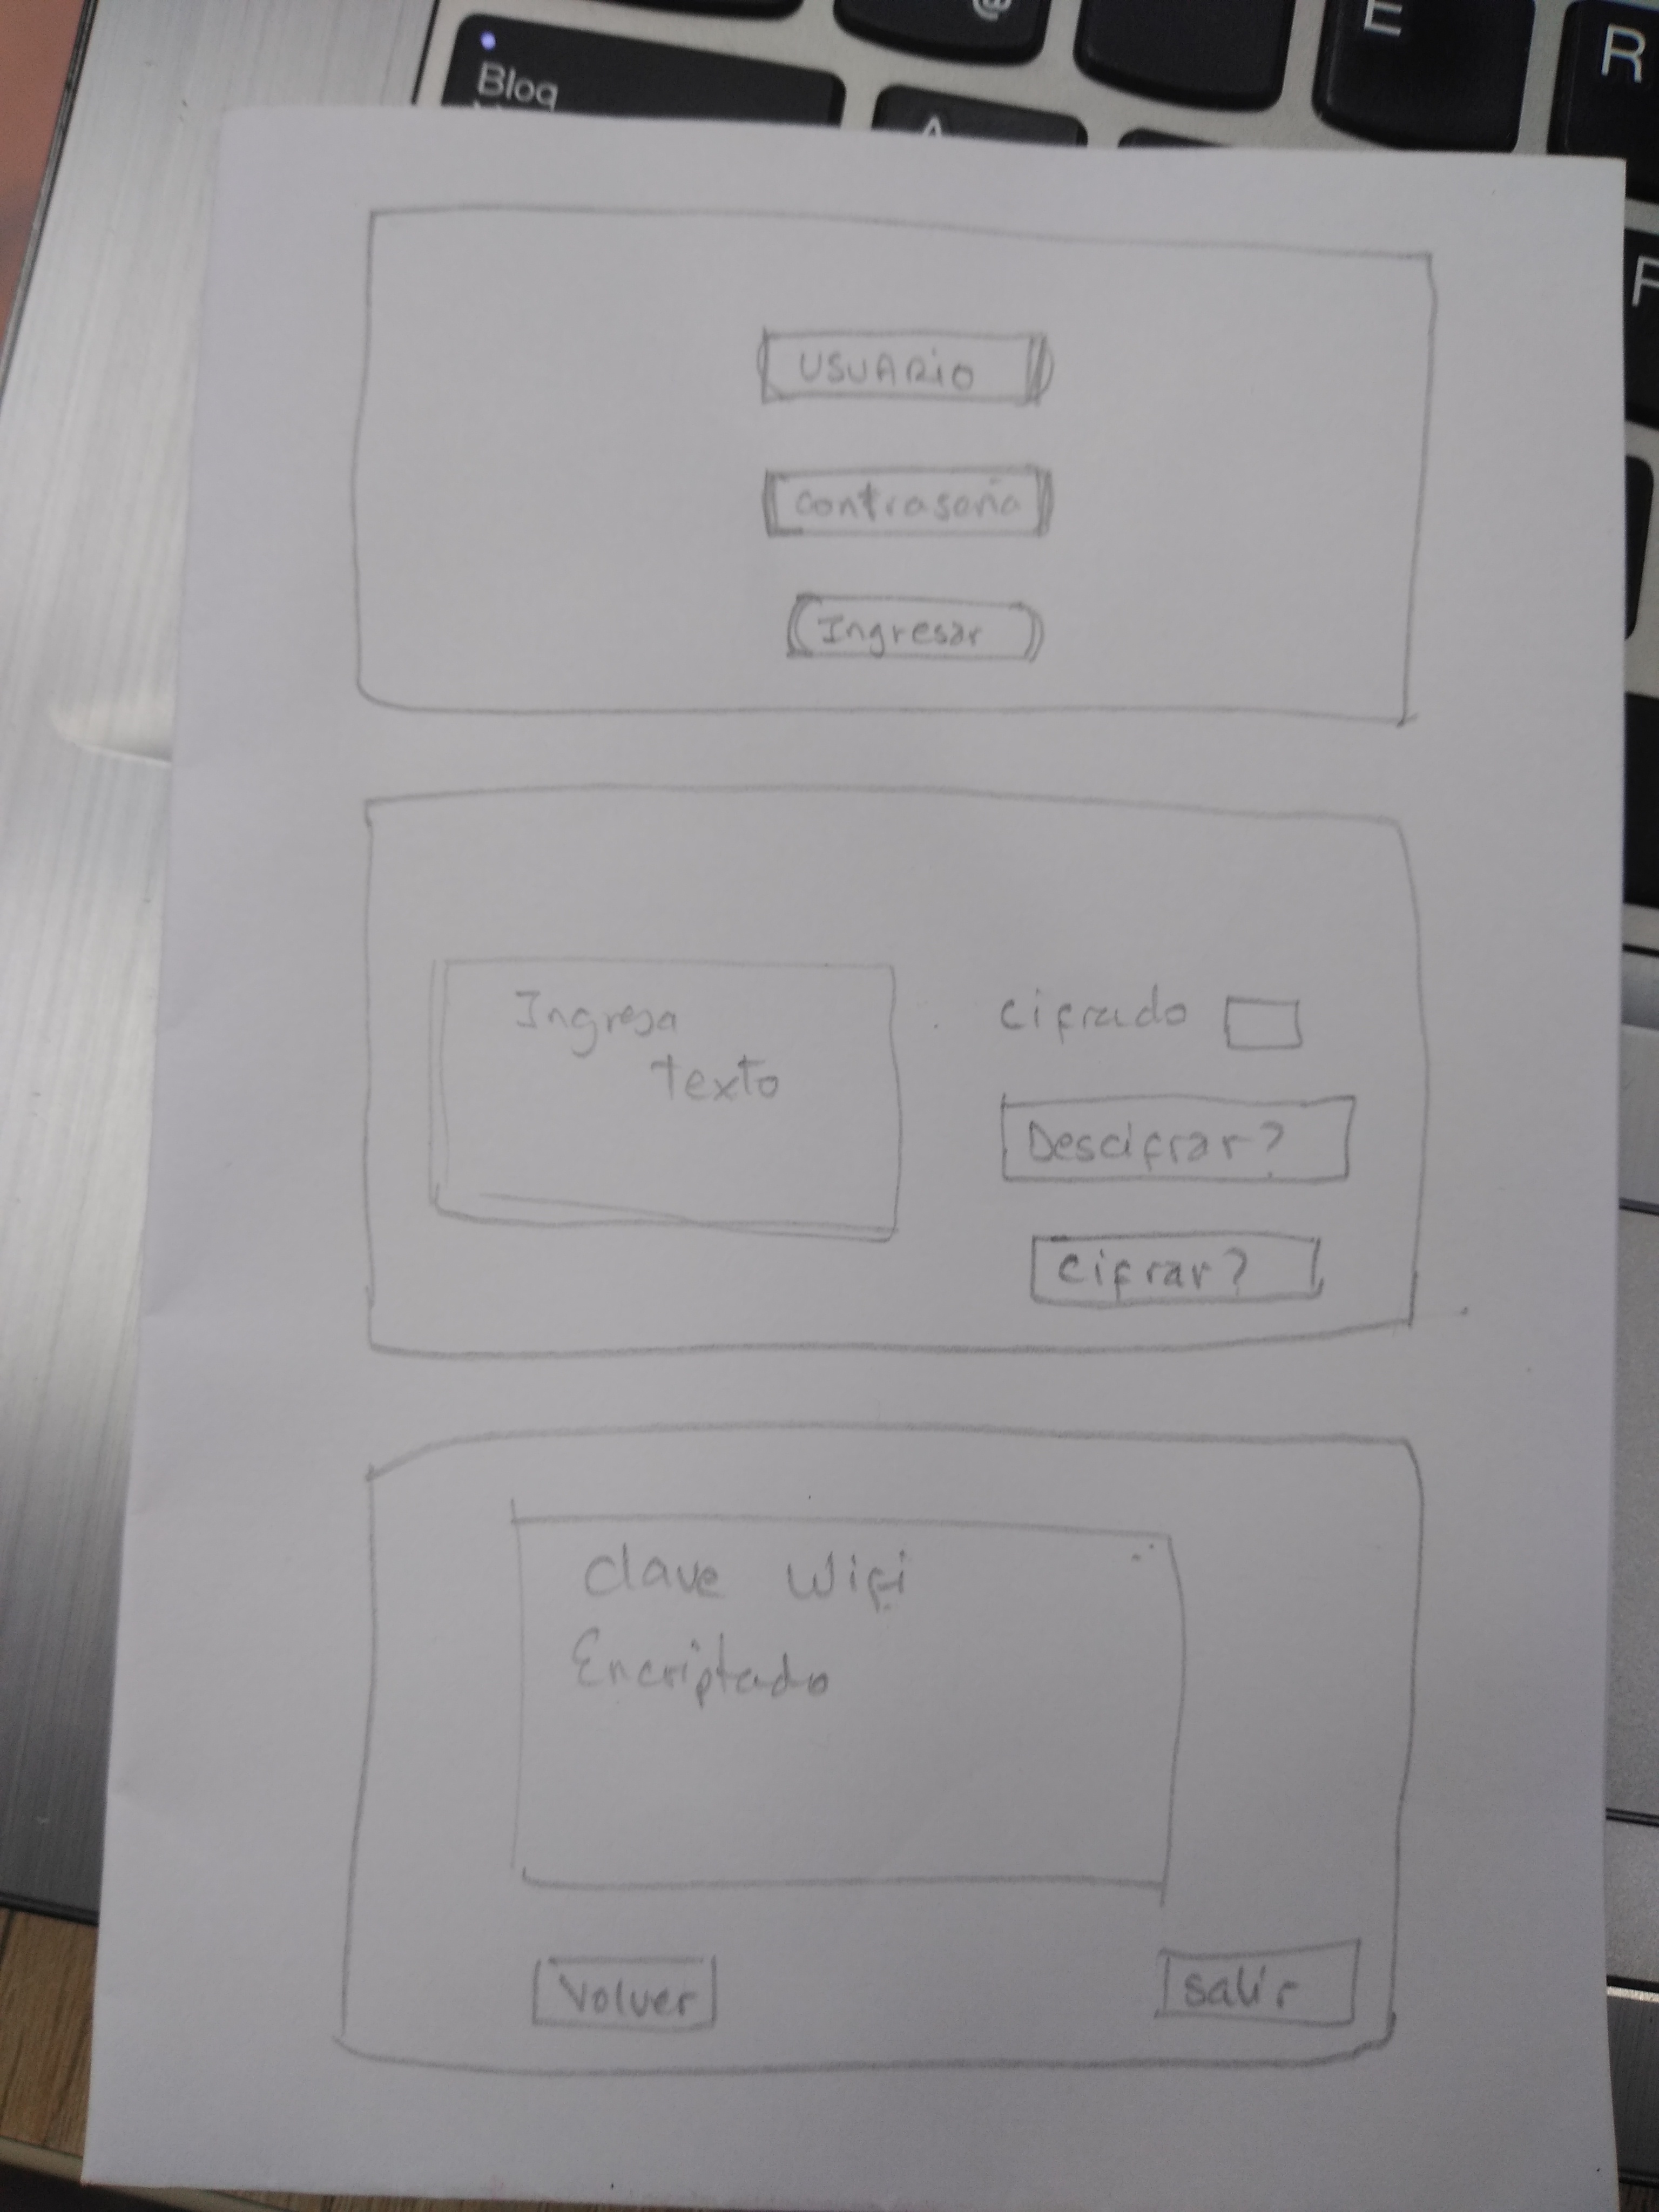 @
E
R
Bloq
A
F
USUARIO
contraseña
Ingresar
Ingresa
texto
cifrado
Descifrar?
cifrar?
clave Wifi
Encriptado
Volver
salir